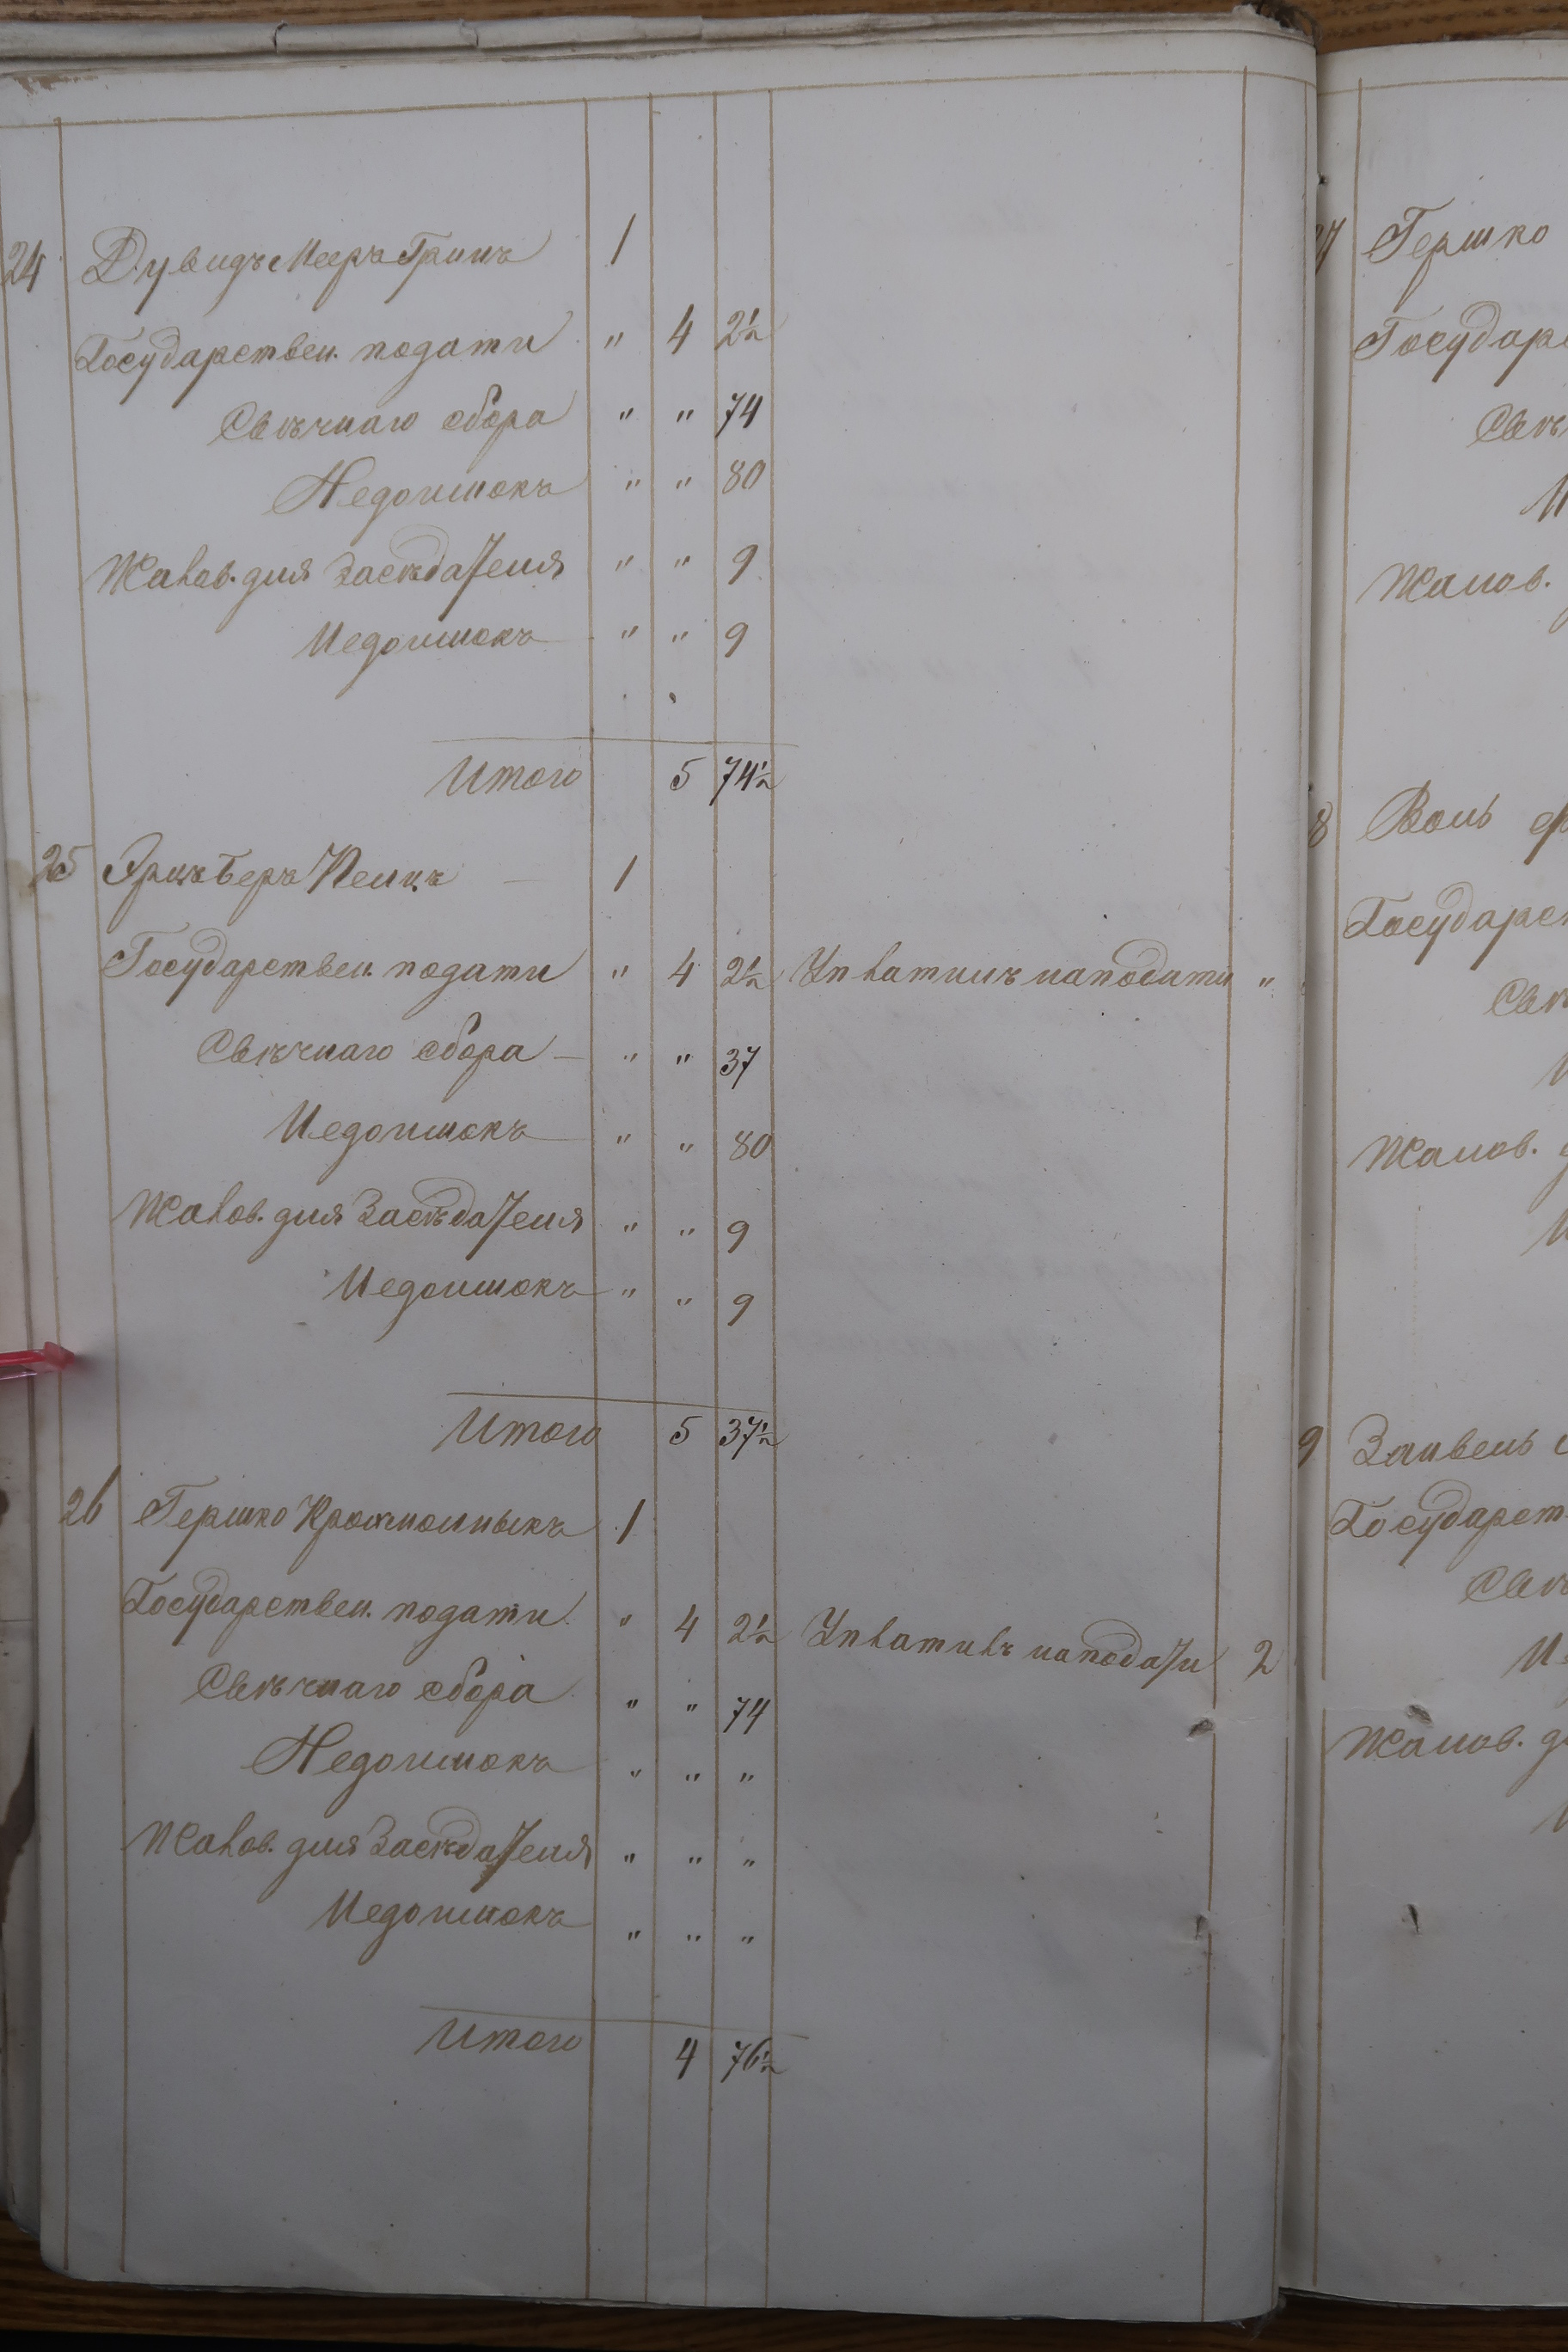 24 Дувидъ Мееръ Гринъ 1
Государствен. подати " 4 2½
Свѣчнаго сбора " " 74
Недоимокъ " " 80
Жалов. для Засѣдателя " " 9
Недоимокъ " " 9
Итого 5 74½
25 Эрцъ Беръ 1
Государствен. подати " 4 2½ Уплатилъ на подати "
Свѣчнаго сбора — " " 37
Недоимокъ " " 80
Жалов. для Засѣдателя " " 9
Недоимокъ " " 9
Итого 5 37½
26 Гершко Крохмольныкъ 1
Государствен. подати " 4 2½ Уплатилъ на подати 2
Свѣчнаго сбора " " 74
Недоимокъ " " "
Жалов. для Засѣдателя " " "
Недоимокъ " " "
Итого 4 76½
Гершко
Государ
Свѣ
Жалов.
8
Государс
Свѣ
Жалов.
9 Занвель
Государст
Свѣ
Жалов.